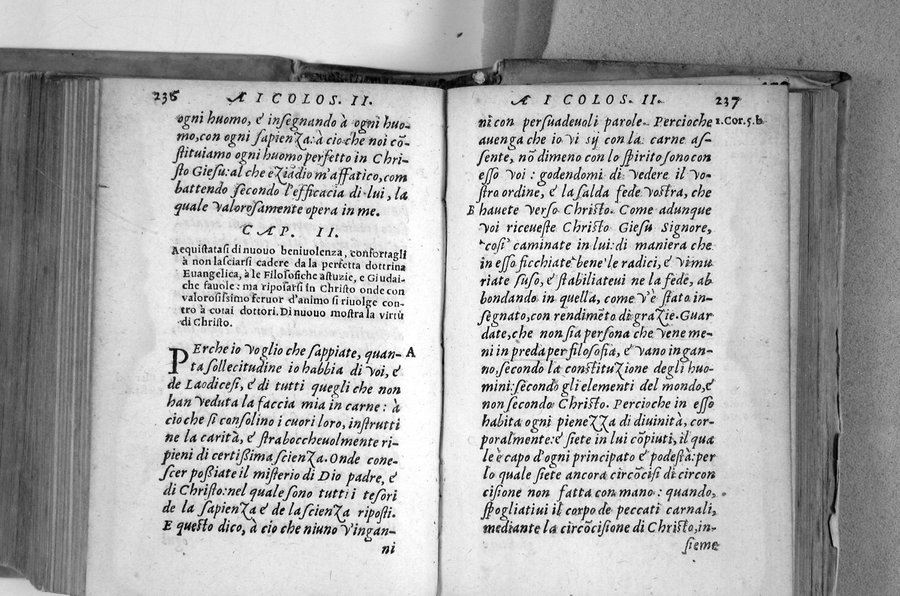 236 Æ I COLOS. II.
ogni huomo, e insegnando à ogni huo-
mo, con ogni sapienza: à cio che noi cō-
stituiamo ogni huomo perfetto in Chri-
sto Giesu: al che eziadio m'affatico, com
battendo secondo l'efficacia di lui, la
quale valorosamente opera in me.
CAP. II.
Aequistatasi di nuouo beniuolenza, confortagli
à non lasciarsi cadere da la perfetta dottrina
Euangelica, à le Filosofiche astuzie, e Giudai-
che fauole: ma riposarsi in Christo onde con
valorosissimo feruor d'animo si riuolge con-
tro à cotai dottori. Di nuouo mostra la virtù
di Christo.
PErche io voglio che sappiate, quan- A
ta sollecitudine io habbia di voi, é
de Laodicesi, é di tutti quegli che non
han veduta la faccia mia in carne: à
cio che si consolino i cuori loro, instrutti
ne la carità, é straboccheuolmente ri-
pieni di certissima scienza. Onde cone-
scer possiate il misterio di Dio padre, é
di Christo: nel quale sono tutti i tesori
de la sapienza é de la scienza riposti.
E questo dico, à cio che niuno v'ingan-
ni
Æ I COLOS. II. 237
ni con persuadeuoli parole. Percioche 1.Cor.5.b
auenga che io vi sij con la carne as-
sente, nō dimeno con lo spirito sono con
esso voi: godendomi di vedere il vo-
stro ordine, é la salda fede vostra, che
B hauete verso Christo. Come adunque
voi riceueste Christo Giesu Signore,
cosi caminate in lui: di maniera che
in esso ficchiate bene le radici, é v'imu
riate suso, é stabiliateui ne la fede, ab
bondando in quella, come v'è stato in-
segnato, con rendimēto di grazie. Guar
date, che non sia persona che vene me-
ni in preda per filosofia, é vano ingan-
no, secondo la constituzione degli huo-
mini: secondo gli elementi del mondo, é
non secondo Christo. Percioche in esso
habita ogni pienezza di diuinità, cor-
poralmente: é siete in lui cōpiuti, il qua
le è capo d'ogni principato é podestà: per
lo quale siete ancora circōcisi di circon
cisione non fatta con mano: quando,
spogliatiui il corpo de peccati carnali,
mediante la circōcisione di Christo, in-
sieme